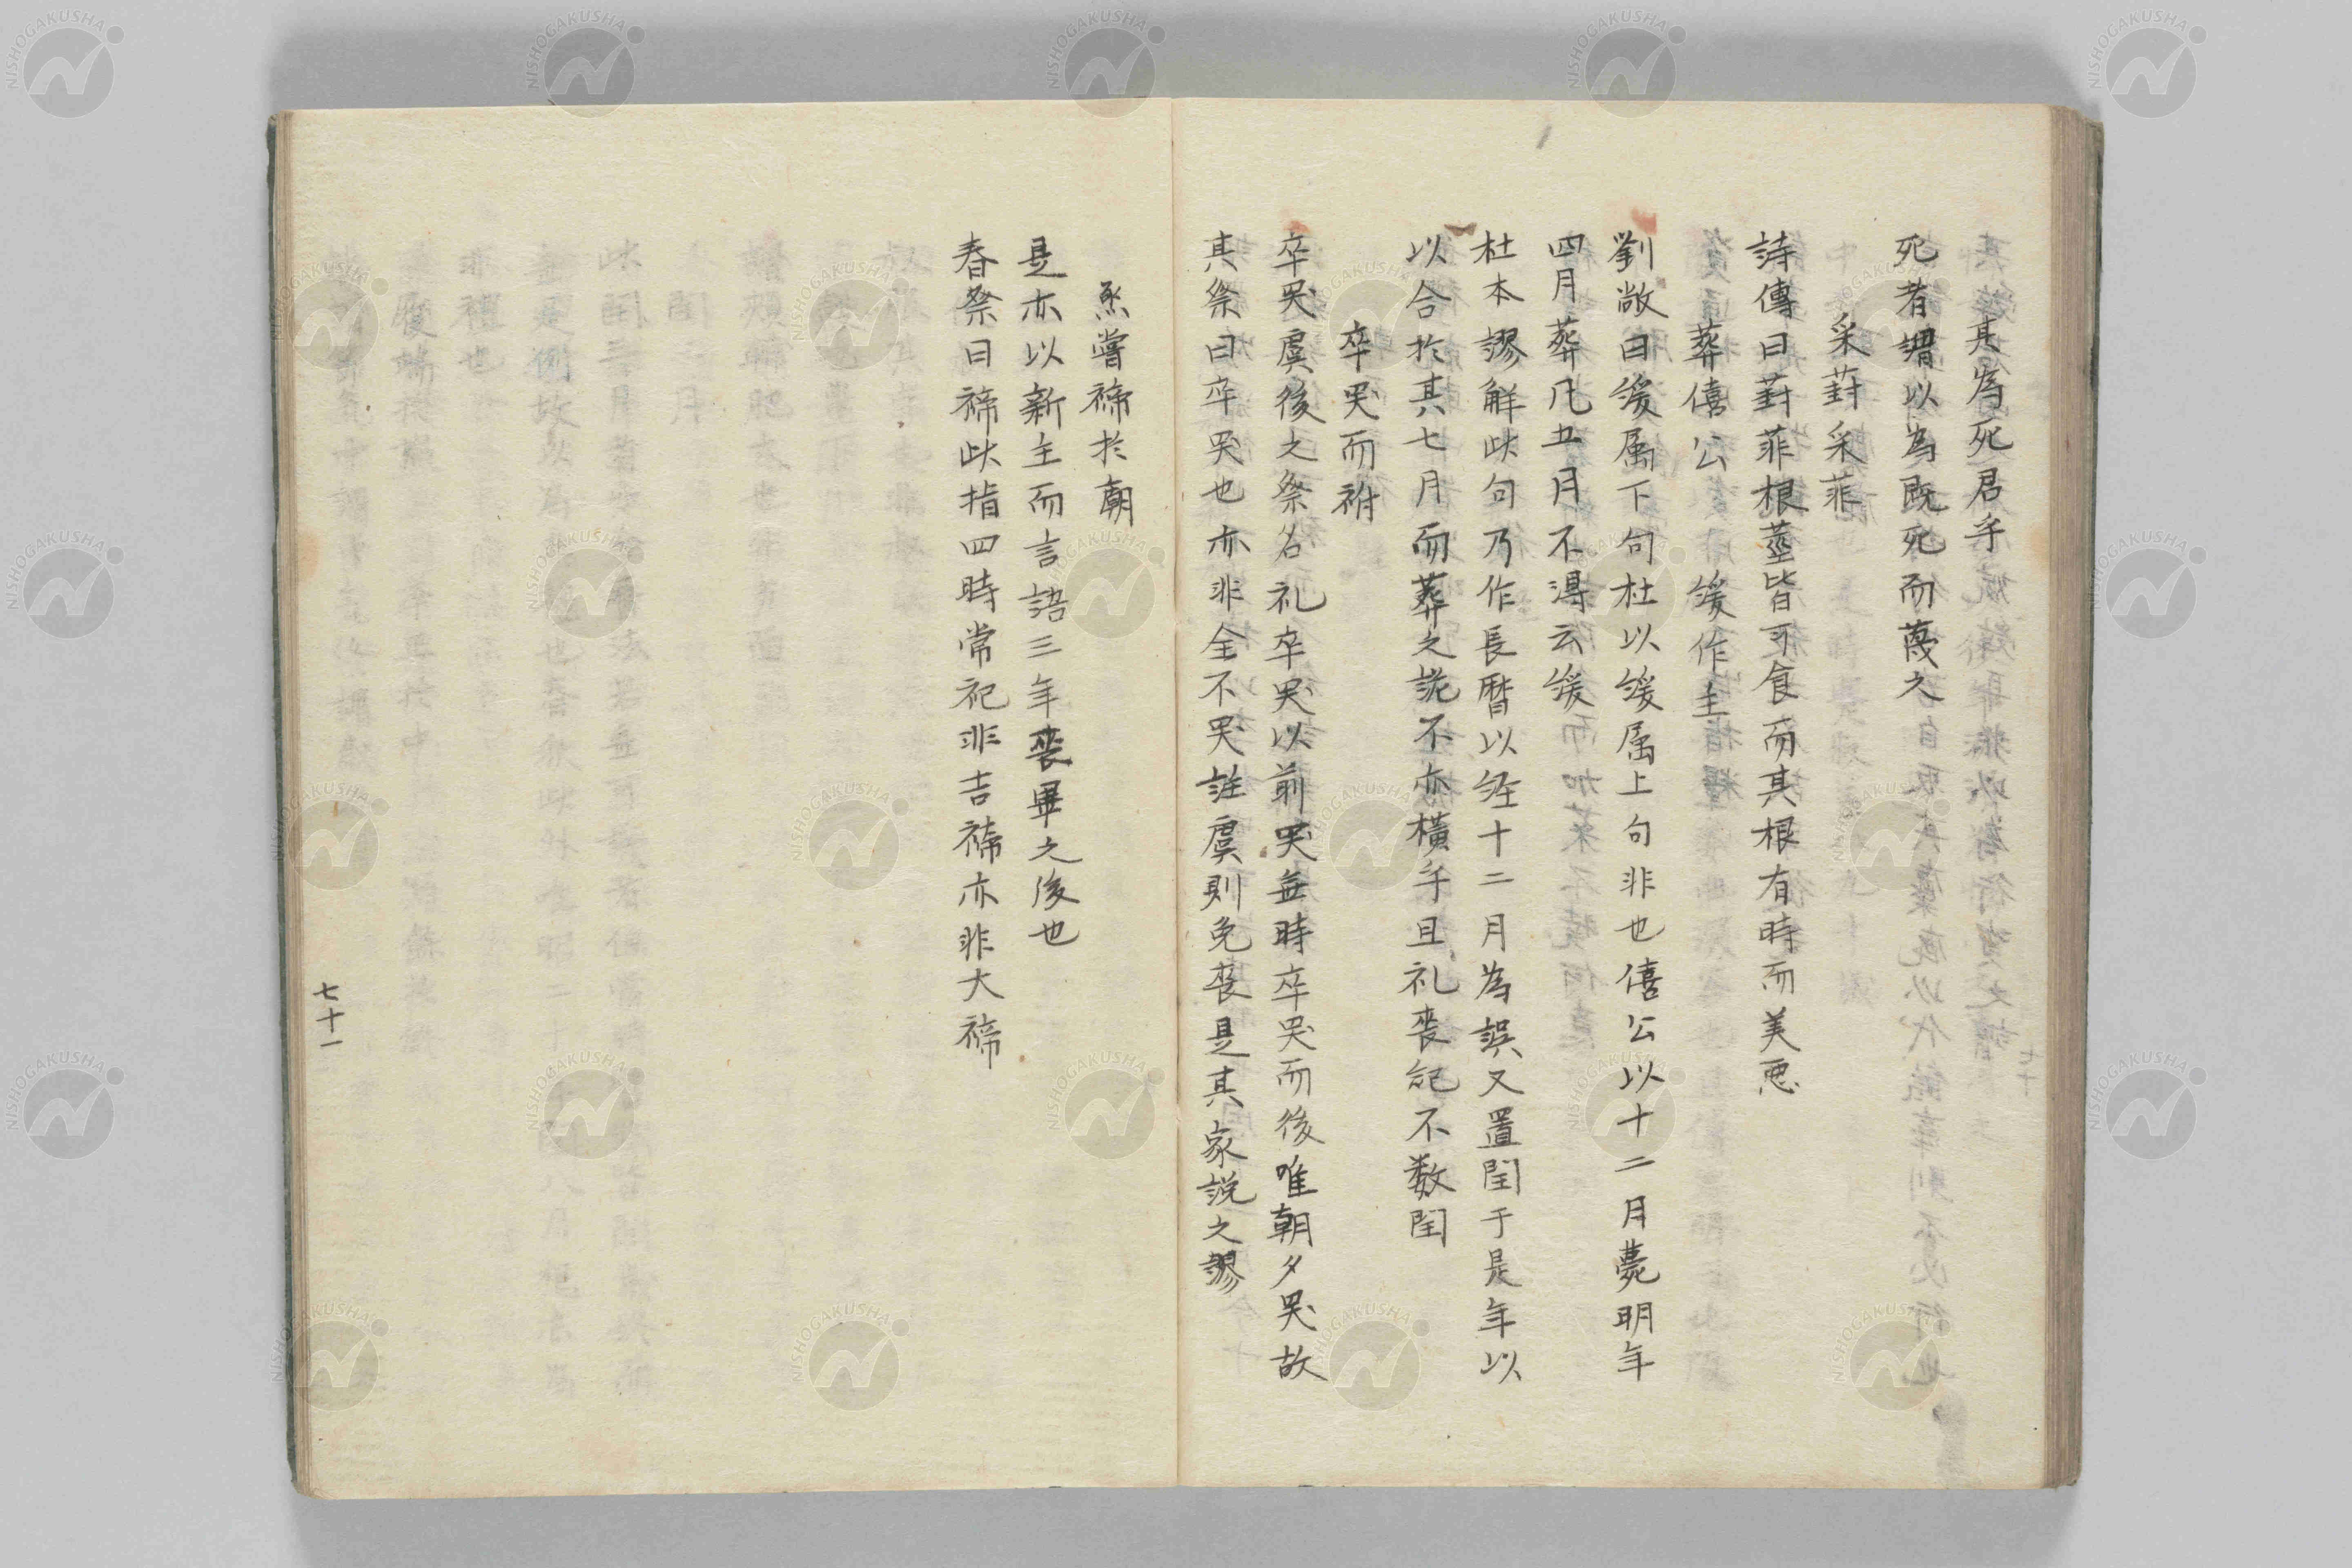 其為死君乎
死者謂以為既死而蔑之
采葑采菲
詩傳曰葑菲根莖皆可食而其根有時而美悪
葬僖公　緩作主
劉敞曰緩属下句杜以緩属上句非也僖公以十二月薨明年
四月葬凡五月不得云緩
杜本謬解此句乃作長暦以経十二月為誤又置閏于是年以
以合於其七月而葬之説不亦横乎且礼喪紀不数閏
卒哭而祔
卒哭虞後之祭名礼卒哭以前哭無時卒哭而後唯朝夕哭故
其祭曰卒哭也亦非全不哭註虞則免喪是其家説之謬
烝嘗禘於廟
是亦以新主而言語三年喪畢之後也
春祭曰禘此指四時常祀非吉禘亦非大禘
七十一
NISHOGAKUSHA